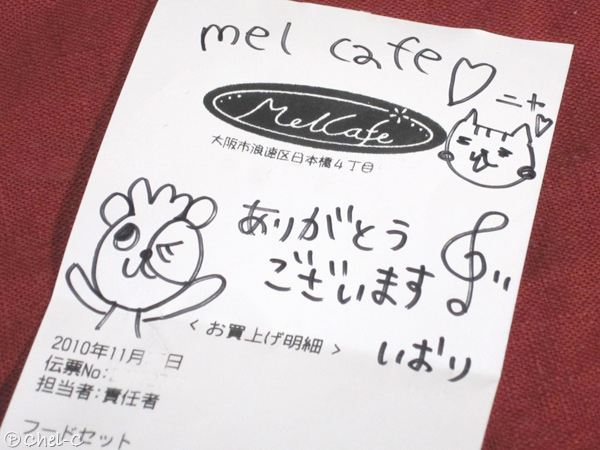 mel cafe♡
ニヤ
MelCafe
大阪市浪速区日本橋4丁目
ありがとう
ございます
いおり
< お買上げ明細 >
2010年11月 日
伝票No:
担当者:責任者
フードセット
© Chel-C